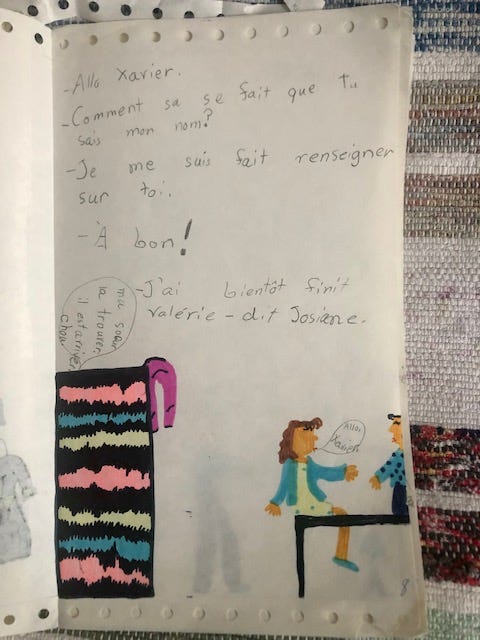 -Allo Xavier.
-Comment sa se fait que tu
sais mon nom?
-Je me suis fait renseigner
sur toi.
-À bon!
-J'ai bientôt finit
valérie - dit Josiane.
ma soeur
la trouver,
il est arriver
chou
Allo!
Xavier
8